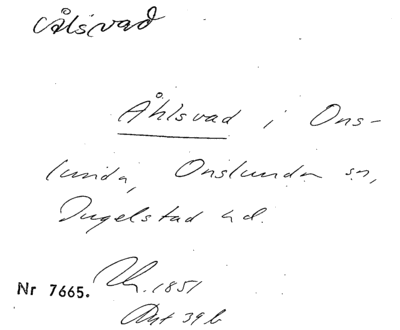 Ålsvad
Åhlsvad i Ons-
lunda, Onslunda sn,
Ingelstad hd.
Nr 7665. Uh. 1851
Akt 39 b